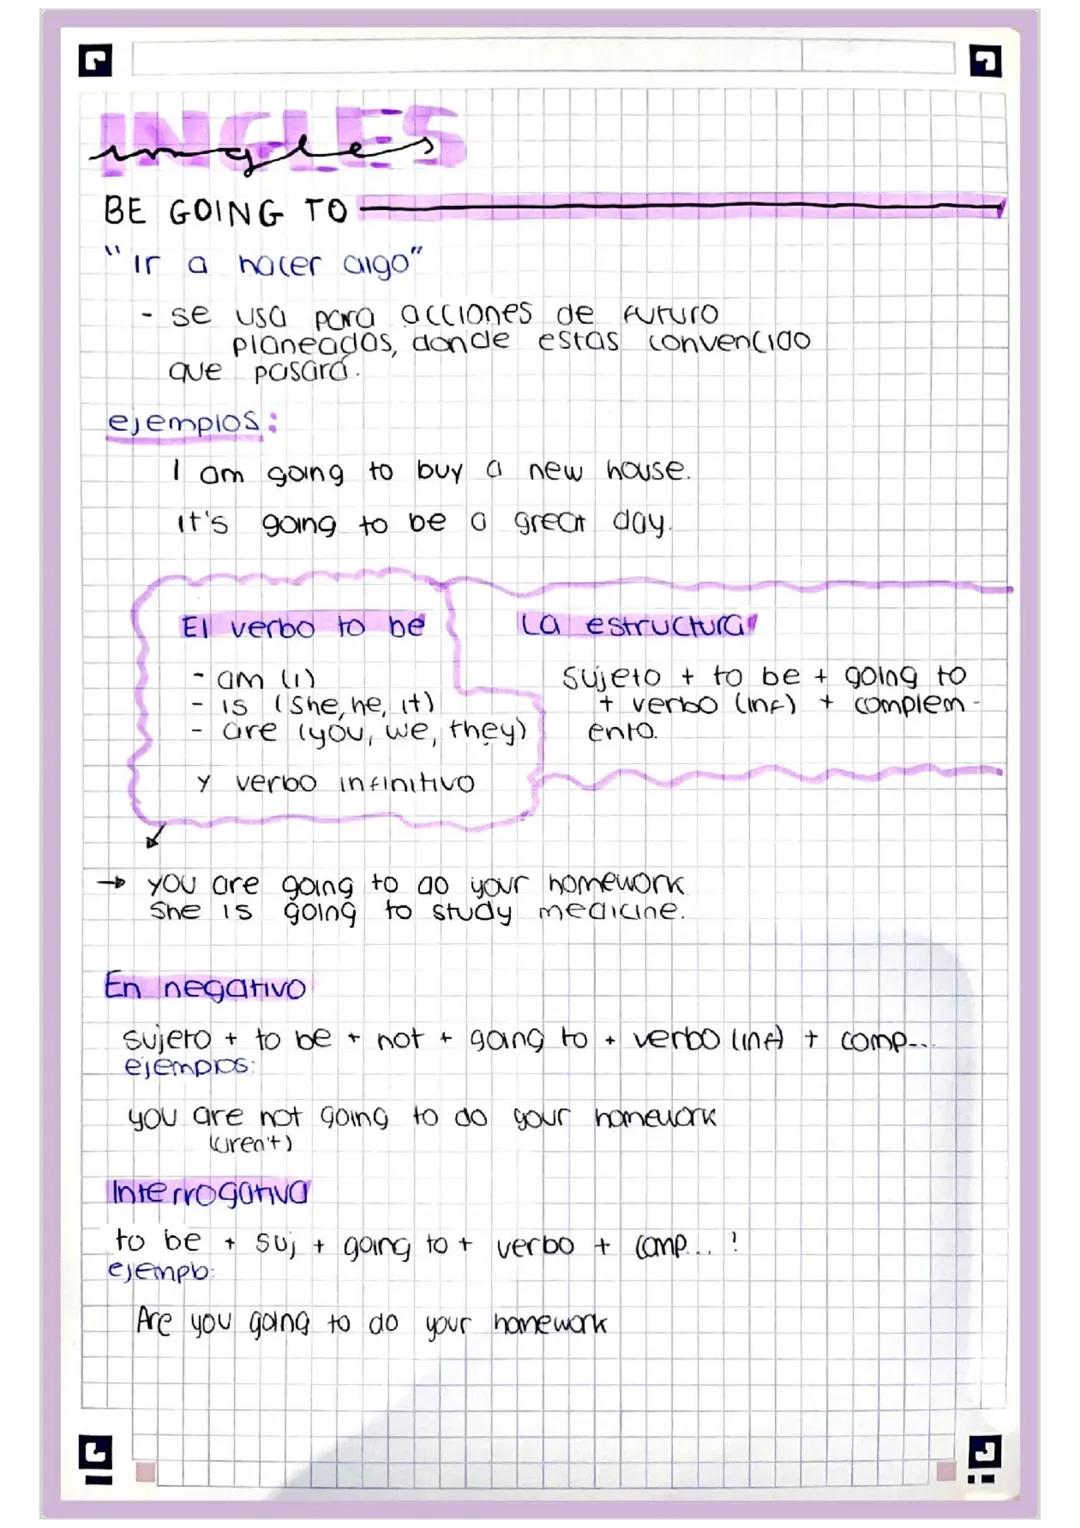 INGLES
ingles
BE GOING TO
"Ir a hacer algo"
- se usa para acciones de futuro
planeados, donde estas convencido
que pasará.
ejemplos:
I am going to buy a new house.
It's going to be a great day.
El verbo to be
- am (I)
- is (She, he, it)
- are (you, we, they)
y verbo infinitivo
La estructura
Sujeto + to be + going to
+ verbo (inf) + complem-
ento.
→ you are going to do your homework
She is going to study medicine.
En negativo
sujeto + to be + not + going to + verbo (inf) + comp...
ejemplos:
you are not going to do your homework
(aren't)
Interrogativa
to be + suj + going to + verbo + comp... ?
ejemplo:
Are you going to do your homework